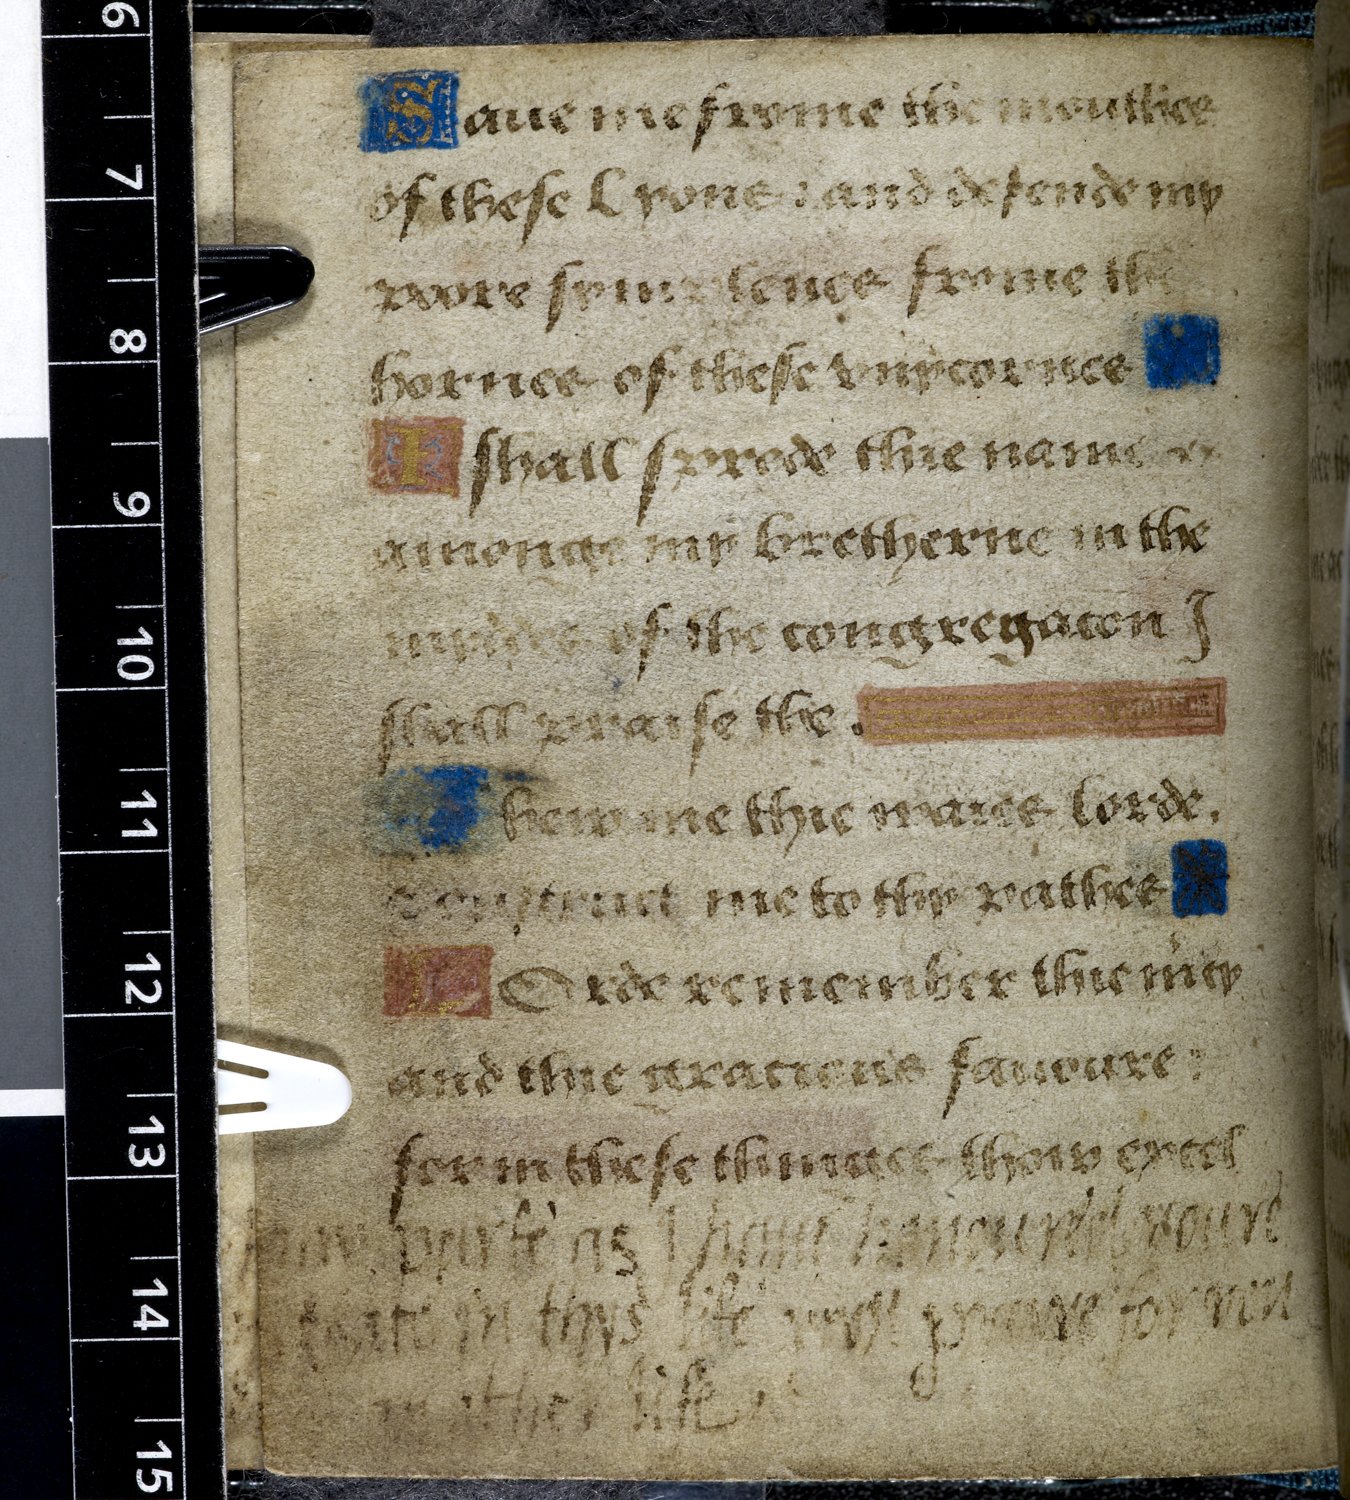 6
7
8
9
10
11
12
13
14
15
Saue me frome the mouthes
of these Lyons : and defende my
poore frome the
hornes of these vnycornes
I shall sprede thie name
amonge my bretherne in the
myddes of the congregacon I
shall praise the .
Shew me thie waies lorde,
enstruct me to thy pathes
LOrde remember thie mcy
and thie gracious fauoure :
for in these thinges thow excel
as I haue youre
in thys life wyl praye for
life